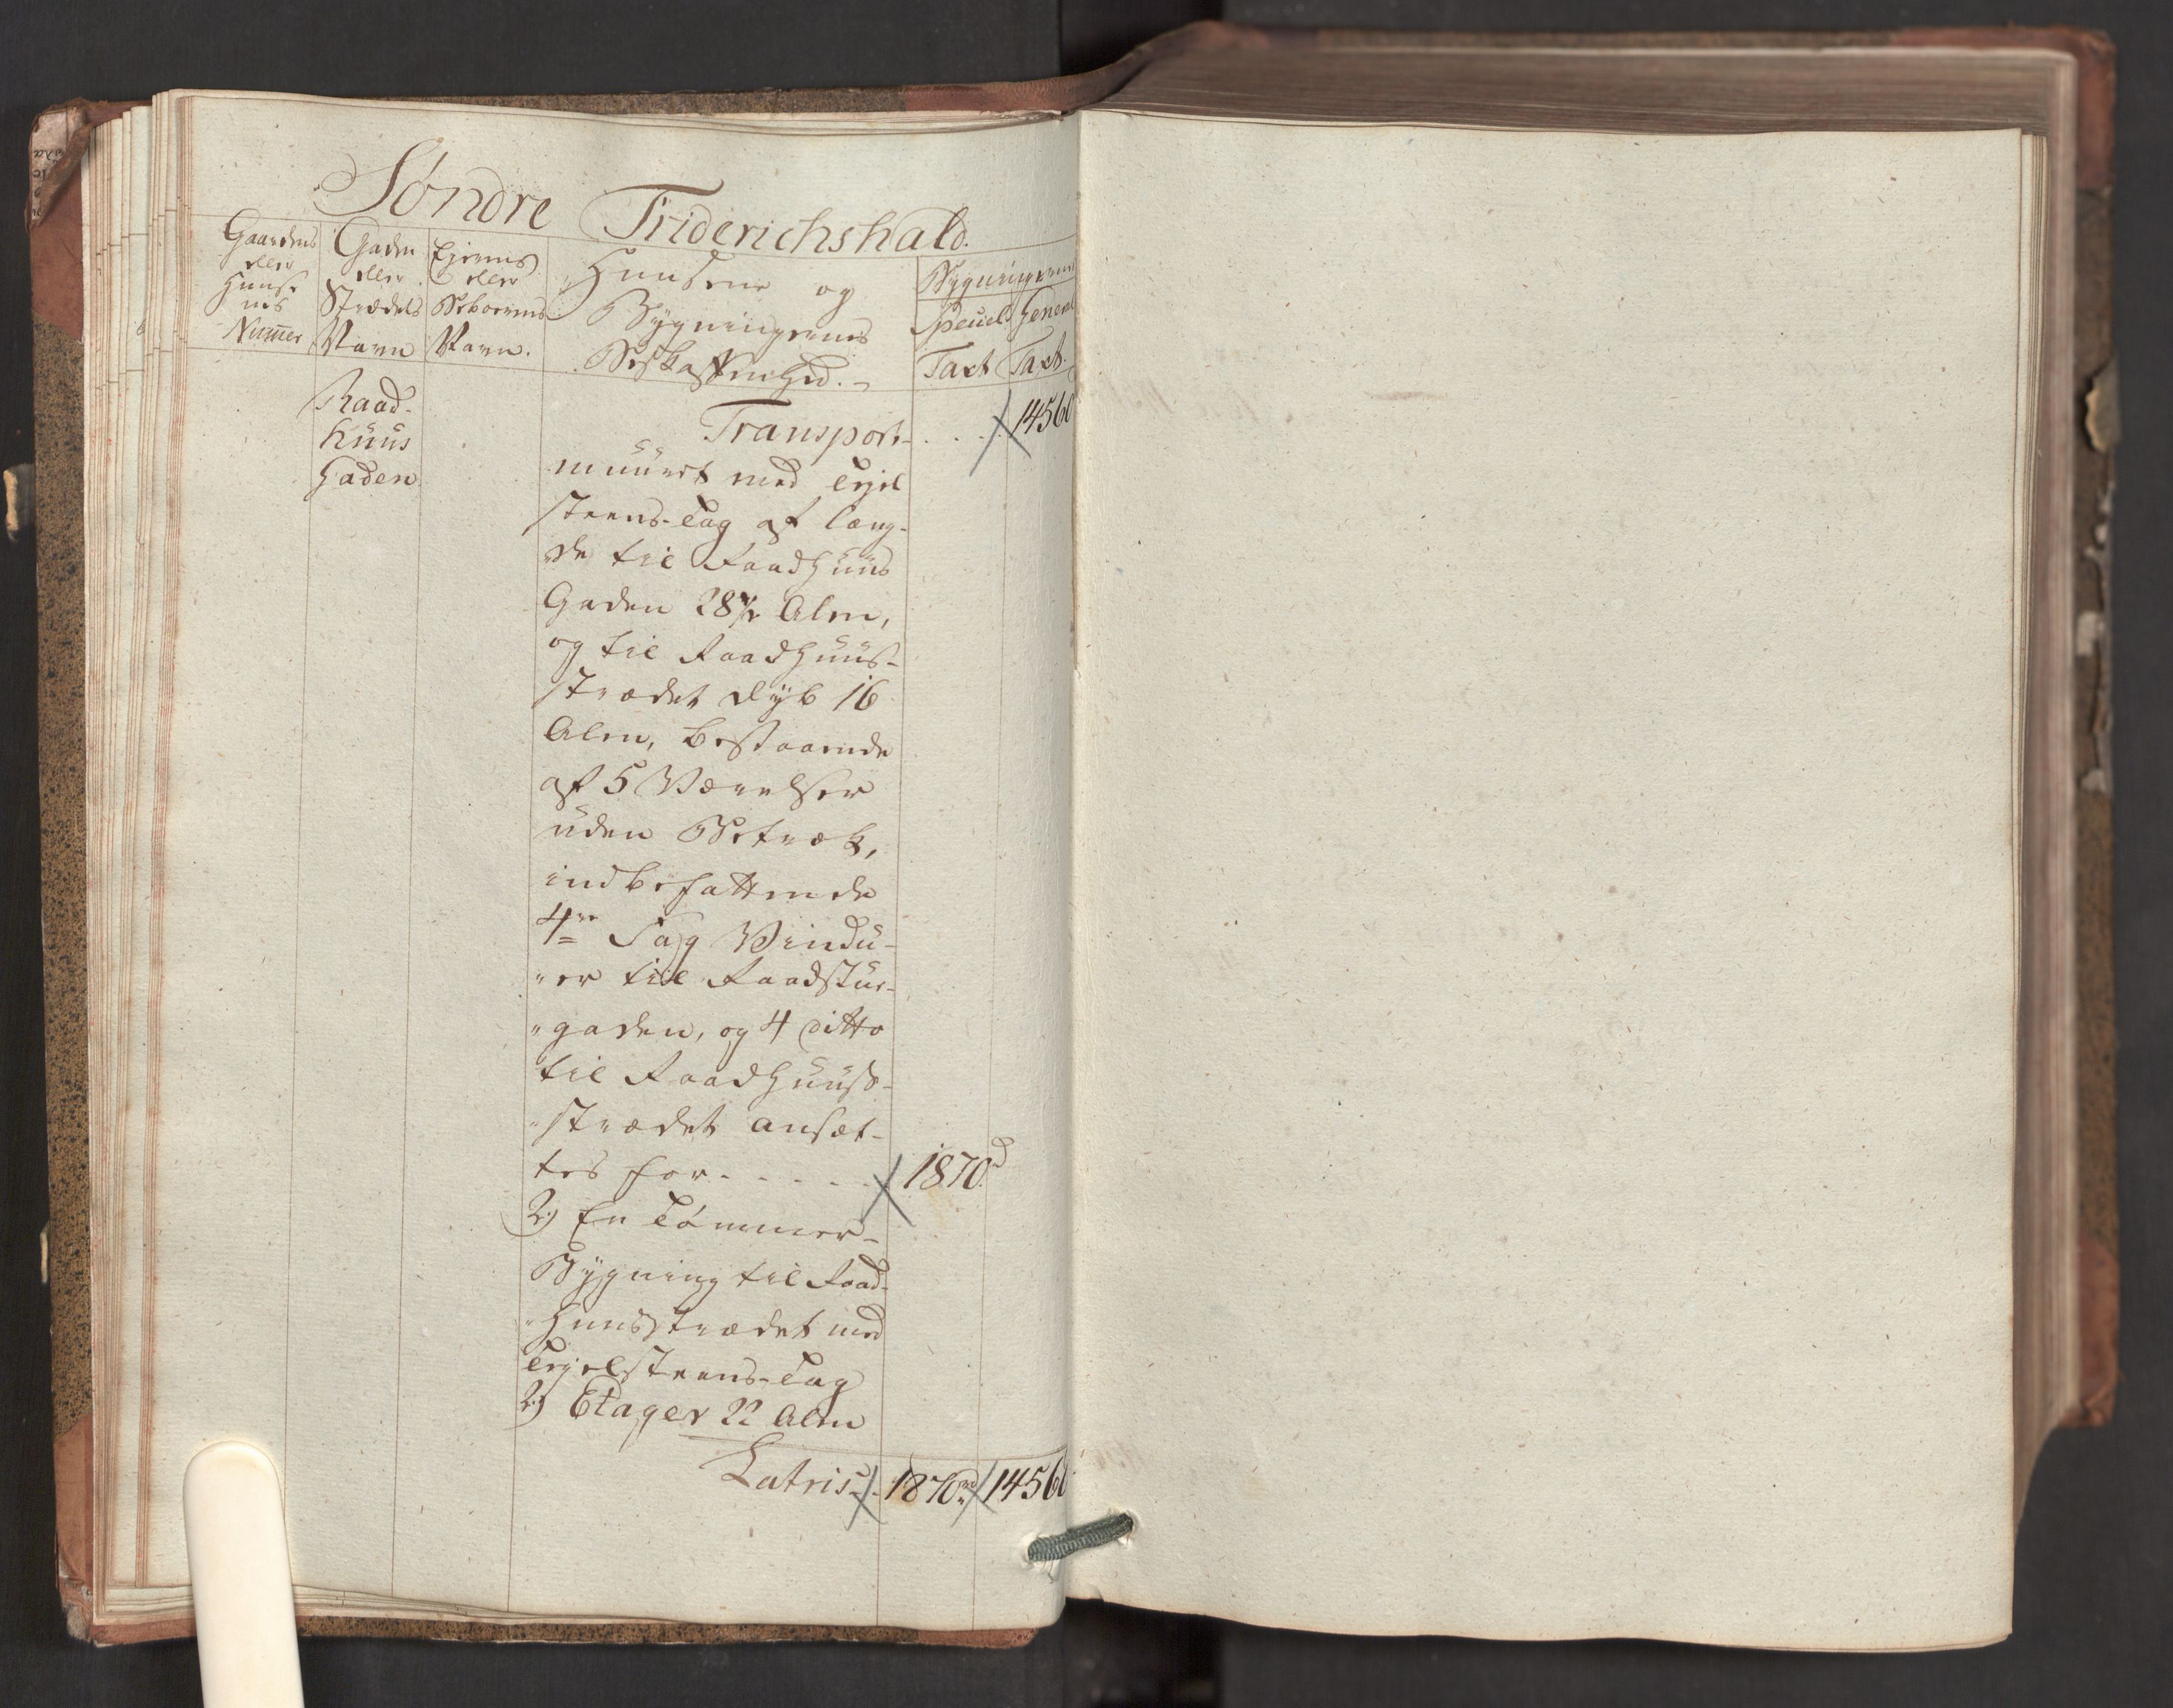 Søndre Friderichshald.
Gaardens
eller
Huuse
nes
Numer
Gaden
eller
Strædets
Navn
Ejerens
eller
Beboerens
Navn.
Huusene og
Bygningernes
Beskaffenhed.
Bygningernes
Speciel
Taxt
General
Taxt.
Raad-
huus
Gaden
Transport- . . . 14560
muuret med Tegel
steens-Tag af læng-
de til Raadhuus
Gaden 28 1/2 Alen,
og til Raadhuus-
strædet dyb 16
Alen, bestaaende
af 5 Værelser
uden Betræk,
indbefattende
4re Fag Vindu-
"er til Raadstue-
"gaden, og 4 ditto
til Raadhuus-
"strædet ansæt-
tes for - - - - - 1870.d
2.) En Tømmer-
Bygning til Raad-
"huusstrædet med
Tegelsteens-Tag
2.) Etager 22 Alen
Latris - 1870rd 14560